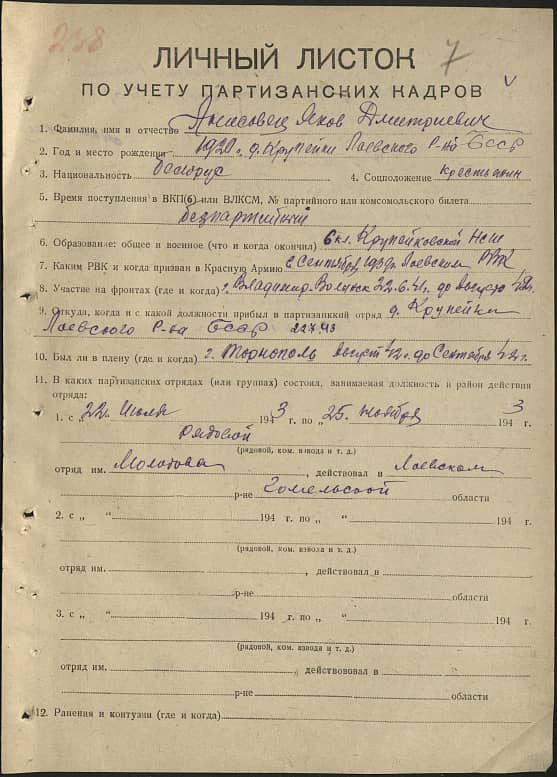 238
7
ЛИЧНЫЙ ЛИСТОК
ПО УЧЕТУ ПАРТИЗАНСКИХ КАДРОВ
v
1. Фамилия, имя и отчество Яков Дмитриевич
2. Год и место рождения 1920г. д. Крупейки Лоевского Р-на БССР
3. Национальность белорус 4. Соцположение крестьянин
5. Время поступления в ВКП(б) или ВЛКСМ, № партийного или комсомольского билета
безпартийный
6. Образование: общее и военное (что и когда окончил) 6 кл. Крупейковской НСШ
7. Каким РВК и когда призван в Красную Армию с Сентября Лоевским РВК
8. Участие на фронтах (где и когда) г. Владимир. Волынск 22.6.41г. до августа 42г.
9. Откуда, когда и с какой должности прибыл в партизанккий отряд д. Крупейки
Лоевского Р-на БССР 22.7.43
10. Был ли в плену (где и когда) г. Тернополь Август 42г. до Сентября 42г.
11. В каких партизанских отрядах (или группах) состоял, занимаемая должность и район действия
отряда:
1. с „22 Июля 1943 г. по „25 Ноября 1943 г.
Рядовой
(рядовой, ком. взвода и т. д.)
отряд им. Молотова, действовал в Лоевском
р-не Гомельской области
2. с „ “ 194 г. по „ “ 194 г.
(рядовой, ком. взвода и т. д.)
отряд им. , действовал в
р-не области
3. с „ “ 194 г. по „ “ 194 г.
(рядовой, ком. взвода и т. д.)
отряд им. , действововал в
р-не области
12. Ранения и контузии (где и когда)